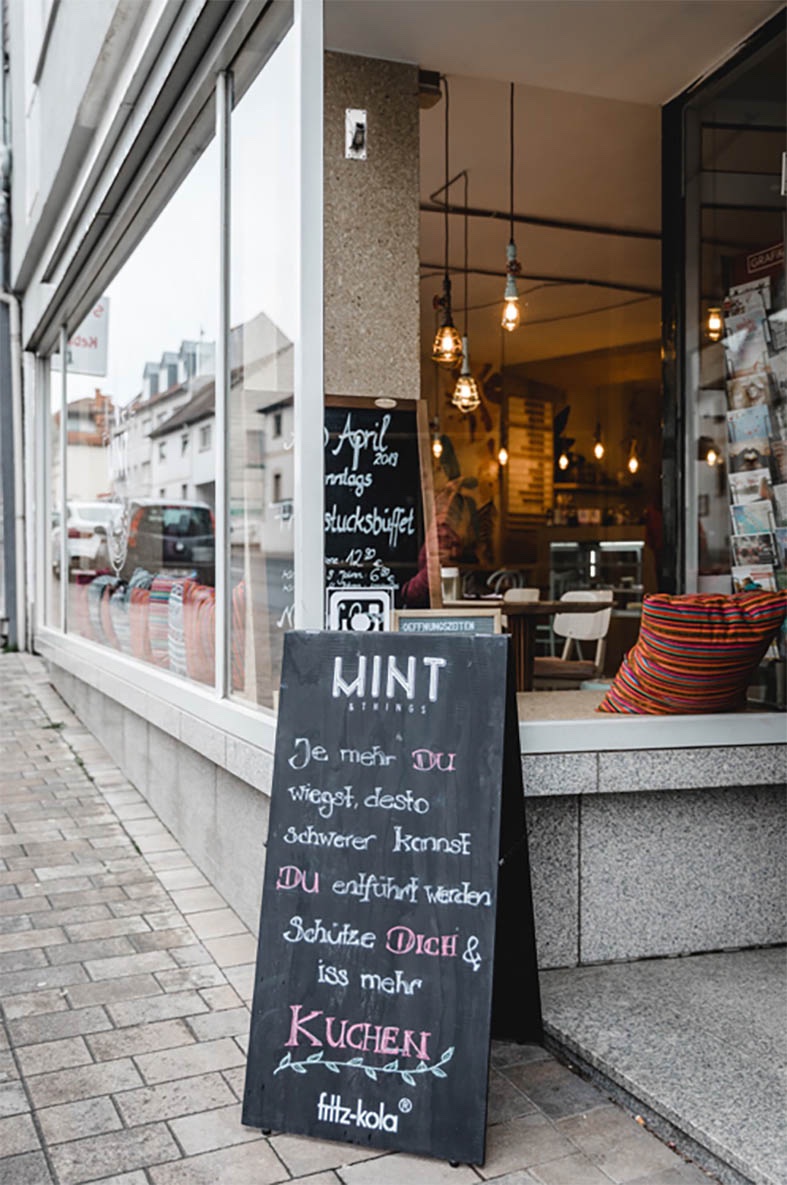 GRAFI
April
2019
nntags
stücksbüffet
12.50
6.50
OEFFNUNGSZEITEN
MINT
& THINGS
Je mehr DU
wiegst, desto
schwerer kannst
DU entführt werden
Schütze DICH &
iss mehr
KUCHEN
fritz-kola®